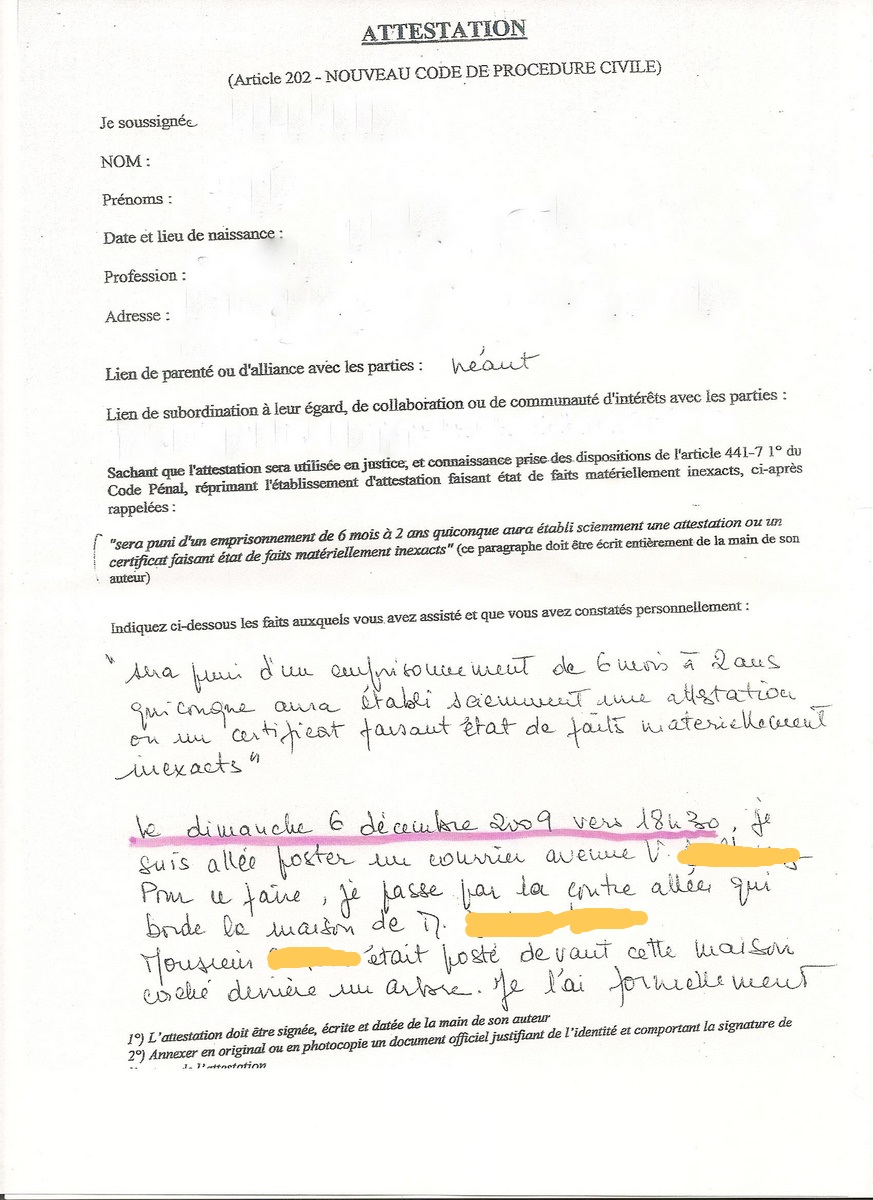 ATTESTATION
(Article 202 - NOUVEAU CODE DE PROCEDURE CIVILE)
Je soussignée
NOM :
Prénoms :
Date et lieu de naissance :
Profession :
Adresse :
Lien de parenté ou d'alliance avec les parties : néant
Lien de subordination à leur égard, de collaboration ou de communauté d'intérêts avec les parties :
Sachant que l'attestation sera utilisée en justice, et connaissance prise des dispositions de l'article 441-7 1° du
Code Pénal, réprimant l'établissement d'attestation faisant état de faits matériellement inexacts, ci-après
rappelées :
"sera puni d'un emprisonnement de 6 mois à 2 ans quiconque aura établi sciemment une attestation ou un
certificat faisant état de faits matériellement inexacts" (ce paragraphe doit être écrit entièrement de la main de son
auteur)
Indiquez ci-dessous les faits auxquels vous avez assisté et que vous avez constatés personnellement :
"sera puni d'un emprisonnement de 6 mois à 2 ans
quiconque aura établi sciemment une attestation
ou un certificat faisant état de faits materiellement
inexacts"
le dimanche 6 décembre 2009 vers 18h30, je
suis allée poster un courrier avenue V.
Pour ce faire, je passe par la contre allée qui
borde la maison de M.
Monsieur était posté devant cette maison
caché derrière un arbre. Je l'ai formellement
1°) L'attestation doit être signée, écrite et datée de la main de son auteur
2°) Annexer en original ou en photocopie un document officiel justifiant de l'identité et comportant la signature de
de l'attestation